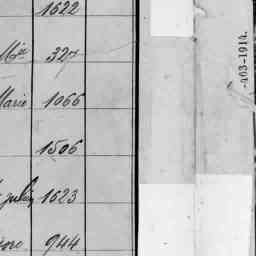 1622
Mie 327
Marie 1066
1506
julien 1623
944
-403-1914.